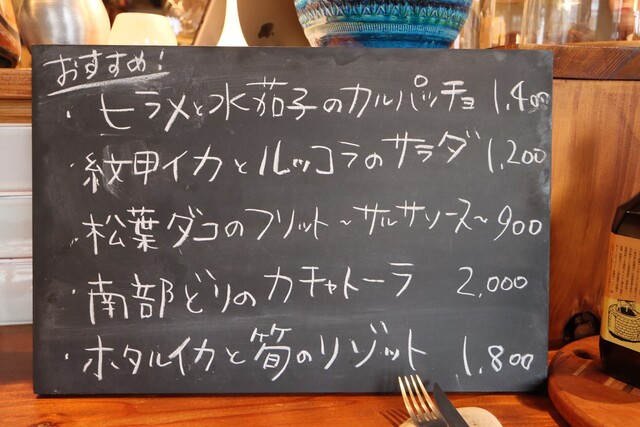 おすすめ!
・ヒラメと水茄子のカルパッチョ 1,400
・紋甲イカとルッコラのサラダ 1,200
・松葉ダコのフリット〜サルサソース〜 900
・南部どりのカチャトーラ 2,000
・ホタルイカと筍のリゾット 1,800